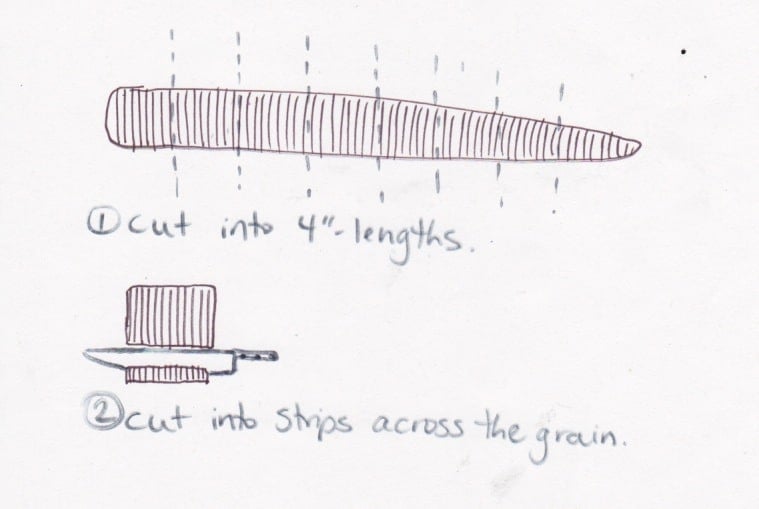 ① cut into 4"-lengths.
② cut into strips across the grain.